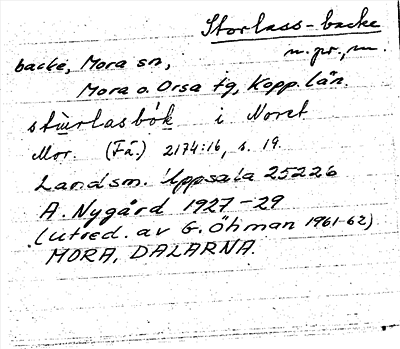 Storlass-backe
n. pr., m.
backe, Mora sn,
Mora o. Orsa tg, Kopp. län.
stùrlasbók i Noret
Mor. (Fä.) 2174:16, s. 19.
Landsm. Uppsala 25226
A. Nygård 1927-29
(utred. av G. Öhman 1961-62)
MORA, DALARNA.